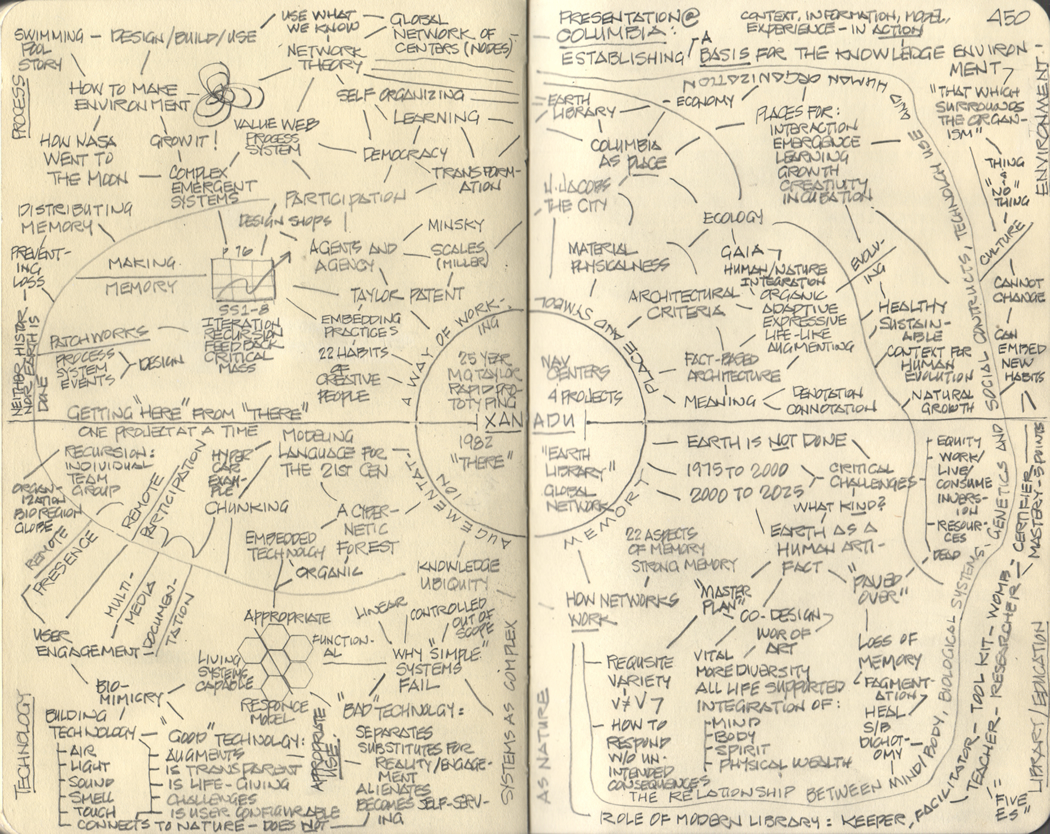 USE WHAT
WE KNOW
GLOBAL
NETWORK OF
CENTERS (NODES)
SWIMMING
POOL
STORY
DESIGN/BUILD/USE
NETWORK
THEORY
PROCESS
HOW TO MAKE
ENVIRONMENT
SELF ORGANIZING
LEARNING
HOW NASA
WENT TO
THE MOON
GROW IT!
VALUE WEB
PROCESS
SYSTEM
DEMOCRACY
TRANSFORM-
ATION
COMPLEX
EMERGENT
SYSTEMS
PARTICIPATION
DISTRIBUTING
MEMORY
DESIGN SHOPS
MINSKY
PREVENT-
ING
LOSS
P 76
AGENTS AND
AGENCY
SCALES
(MILLER)
MAKING
MEMORY
TAYLOR PATENT
SS1-8
ITERATION
RECURSION
FEEDBACK
CRITICAL
MASS
EMBEDDING
PRACTICES
22 HABITS
OF
CREATIVE
PEOPLE
A WAY OF WORK-
ING
PATCHWORKS
PROCESS
SYSTEM
EVENTS
DESIGN
NEITHER HISTORY
NOR EARTH IS
DONE
25 YEAR
MG TAYLOR
RAPID PRO-
TOTYPING
GETTING "HERE" FROM "THERE"
XANADU
1982
"THERE"
ONE PROJECT AT A TIME
RECURSION:
INDIVIDUAL
TEAM
GROUP
ORGAN-
IZATION
BIOREGION
GLOBE
REMOTE
PARTICIPATION
HYPER
CAR
EXAM-
PLE
CHUNKING
MODELING
LANGUAGE FOR
THE 21ST CEN
A CYBER-
NETIC
FOREST
AUGEMENTAT-
ION
REMOTE
PRESENCE
EMBEDDED
TECHNOLOGY
ORGANIC
KNOWLEDGE
UBIQUITY
MULTI-
MEDIA
DOCUMEN-
TATION
APPROPRIATE
FUNCTION-
AL
LIVING
SYSTEMS
CAPABLE
RESPONCE
MODEL
LINEAR
CONTROLLED
OUT OF
SCOPE
WHY "SIMPLE"
SYSTEMS
FAIL
USER
ENGAGEMENT
BIO-
MIMICRY
TECHNOLOGY
BUILDING
TECHNOLOGY
AIR
LIGHT
SOUND
SMELL
TOUCH
"GOOD" TECHNOLOGY:
AUGMENTS
IS TRANSPARENT
IS LIFE-GIVING
CHALLENGES
IS USER CONFIGURABLE
CONNECTS TO NATURE - DOES NOT
APPROPRIATE
USE:
"BAD" TECHNOLGY:
SEPARATES
SUBSTITUTES FOR
REALITY/ENGAGE-
MENT
ALIENATES
BECOMES SELF-SERV-
ING
SYSTEMS AS COMPLEX
AS NATURE
PRESENTATION @
COLUMBIA:
CONTEXT, INFORMATION, MODEL,
EXPERIENCE - IN ACTION
450
ESTABLISHING A
BASIS FOR THE KNOWLEDGE ENVIRON-
MENT
"THAT WHICH
SURROUNDS
THE ORGAN-
ISM"
ENVIRONMENT
EARTH
LIBRARY
ECONOMY
COLUMBIA
AS PLACE
PLACES FOR:
INTERACTION
EMERGENCE
LEARNING
GROWTH
CREATIVITY
INCUBATION
"THING
NO-A
THING"
JACOBS
THE CITY
ECOLOGY
MATERIAL
PHYSICALNESS
GAIA
HUMAN/NATURE
INTEGRATION
ARCHITECTURAL
CRITERIA
ORGANIC
ADAPTIVE
EXPRESSIVE
LIFE-LIKE
AUGMENTING
EVOLV-
ING
CULTURE
CANNOT
CHANGE
CAN
EMBED
NEW
HABITS
HEALTHY
SUSTAIN-
ABLE
CONTEXT FOR
HUMAN
EVOLUTION
NATURAL
GROWTH
PLACE AND SYMBOL
FACT-BASED
ARCHITECTURE
MEANING
DENOTATION
CONNOTATION
NAV
CENTERS
4 PROJECTS
"EARTH
LIBRARY"
GLOBAL
NETWORK
MEMORY
EARTH IS NOT DONE
1975 TO 2000
2000 TO 2025
CRITICAL
CHALLENGES
WHAT KIND?
EQUITY
WORK/
LIVE/
CONSUME
INVERS-
ION
RESOUR-
CES
DEAD
22 ASPECTS
OF MEMORY
STRONG MEMORY
EARTH AS A
HUMAN ARTI-
FACT
HOW NETWORKS
WORK
"MASTER
PLAN"
CO-DESIGN
WOR OF
ART
"PAVED
OVER"
REQUISITE
VARIETY
V≠V7
HOW TO
RESPOND
W/O UN-
INTENDED
CONSEQUENCES
VITAL
MORE DIVERSITY
ALL LIFE SUPPORTED
INTEGRATION OF:
MIND
BODY
SPIRIT
PHYSICAL WEALTH
LOSS OF
MEMORY
FAGMENT-
ATION
HEAL
S/B
DICHOT-
OMY
THE RELATIONSHIP BETWEEN MIND/BODY, BIOLOGICAL SYSTEMS, GENETICS AND SOCIAL CONTRUCTS, TECHNOLOGY USE AND HUMAN ORGANIZATION
ROLE OF MODERN LIBRARY: KEEPER, FACILITATOR - TOOL KIT - WOMB -
TEACHER - RESEARCHER - CERTIFIER
MASTERY - 5 POINTS
"FIVE
ES"
LIBRARY/EDUCATION